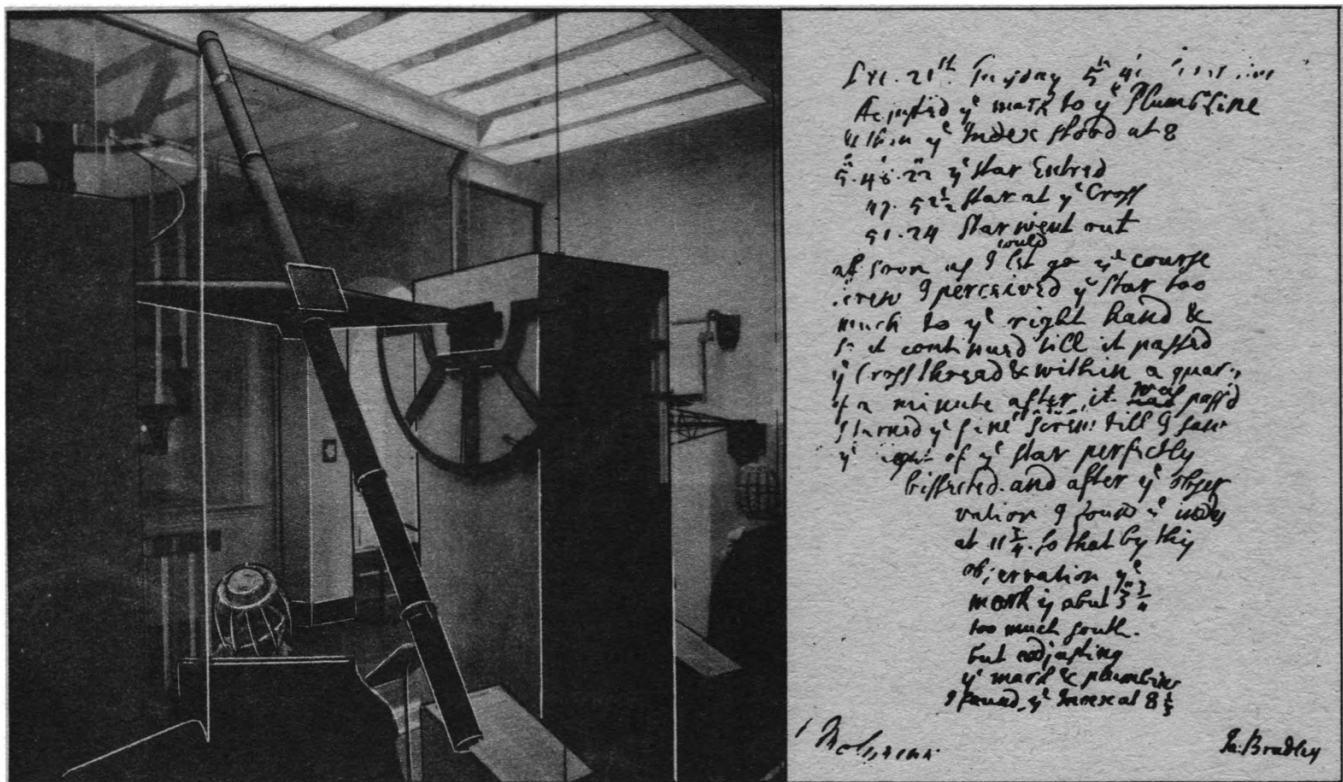 Dec. 21st Tuesday 5h 4
Adjusted ye mark to ye Plumb Line
& then ye Index stood at 8
5h 48' 22" ye star Entred
49. 52½ star at ye Cross
51. 24 star went out
as soon as I let go ye course
screw I perceived ye star too
much to ye right hand &
so it continued till it passed
ye Cross thread & within a quar
of a minute after it was pass'd
I turned ye fine screw till I saw
ye of ye star perfectly
bissected. and after ye obser
vation I found ye index
at 11 ¾. so that by this
observation ye
mark is about 3" ¾
too much south.
but adjusting
ye mark & plumbline
I found ye Index at 8
Ja: Bradley